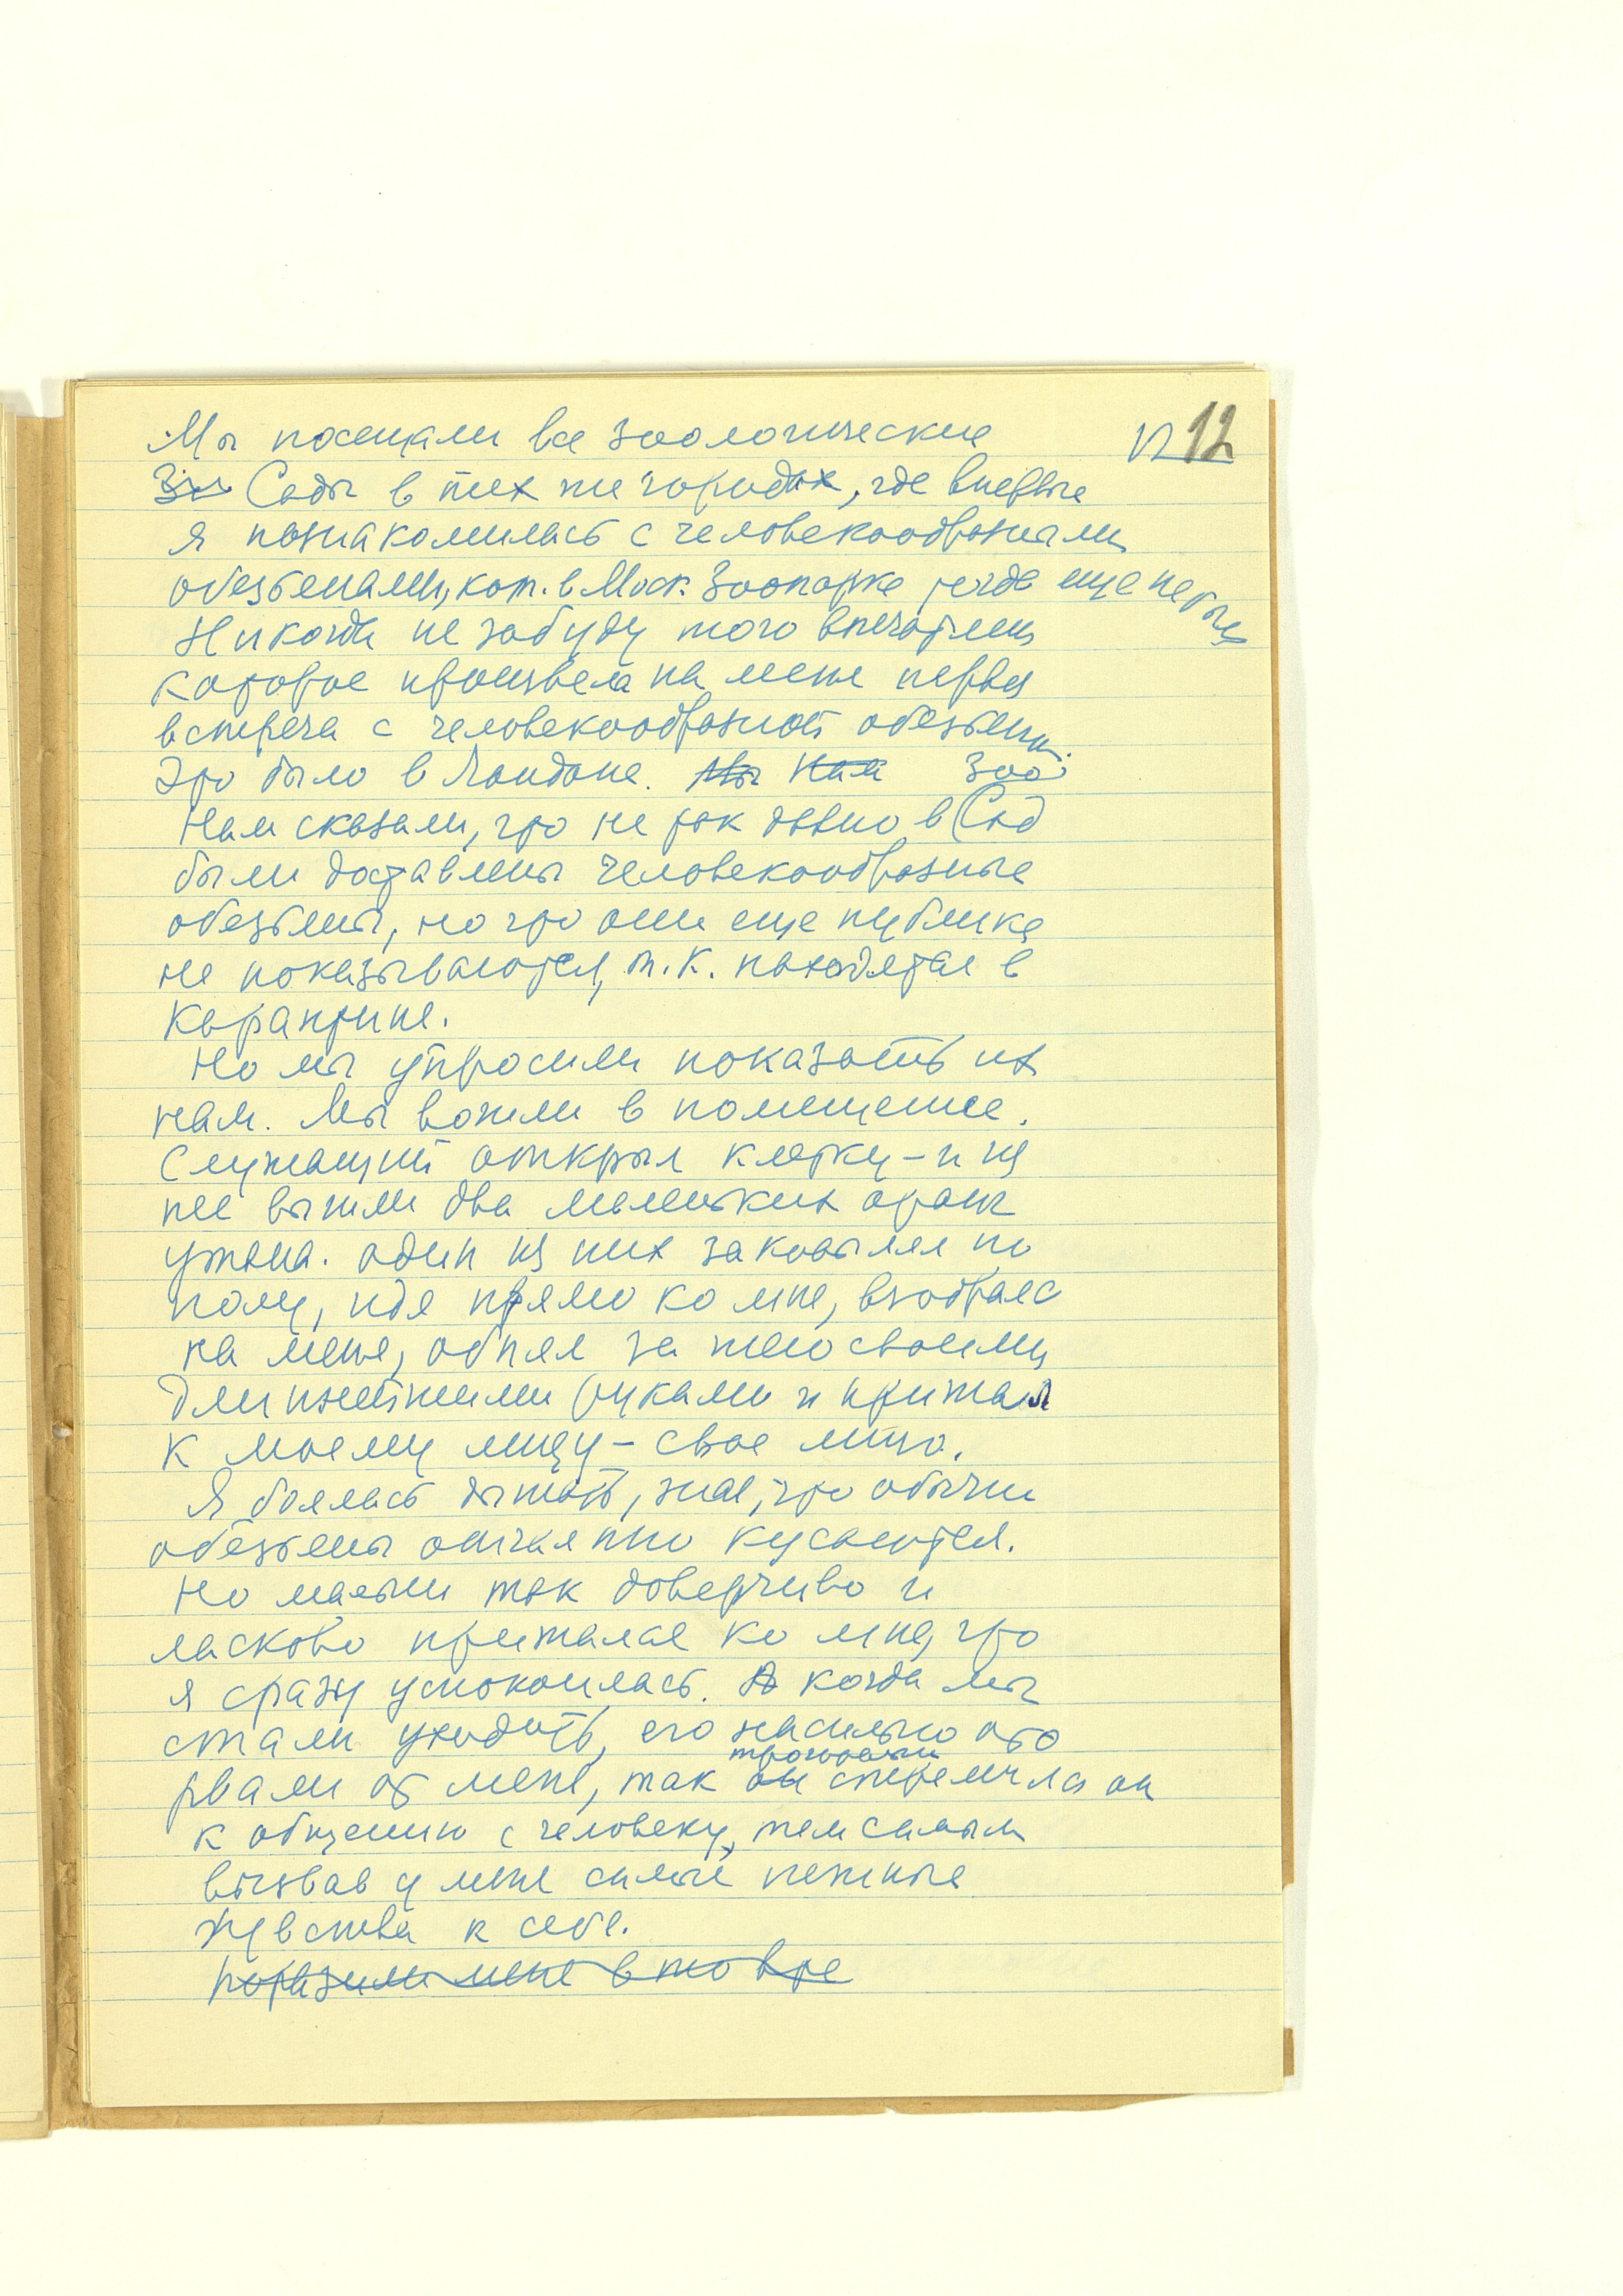 Мы посещали все зоологические
12
Сады в тех же городах, где впервые
я познакомилась с человекообразными
обезьянами, кот. в Моск. Зоопарке тогда еще не было
Никогда не забуду того впечатления
которое произвела на меня первая
встреча с человекообразной обезьяной.
Это было в Лондоне. Мы Нам Зоо
Нам сказали, что не так давно в Сад
были доставлены человекообразные
обезьяны, но что они еще публике
не показываются, т.к. находятся в
карантине.
Но мы упросили показать их
нам. Мы вошли в помещение.
Служащий открыл клетку – и из
нее вышли два маленьких оранг
утана. Один из них заковылял по
полу, идя прямо ко мне, взобрался
на меня, обнял за шею своими
длиннейшими руками и прижал
к моему лицу – свое лицо.
Я боялась дышать, зная, что обычно
обезьяны отчаянно кусаются.
Но малыш так доверчиво и
ласково прижался ко мне, что
я сразу успокоилась. А когда мы
стали уходить, его насильно ото
трогательно
рвали от меня, так он стремился он
к общению с человеку, тем самым
вызвав у меня самые нежные
чувства к себе.
поразили меня в то вре